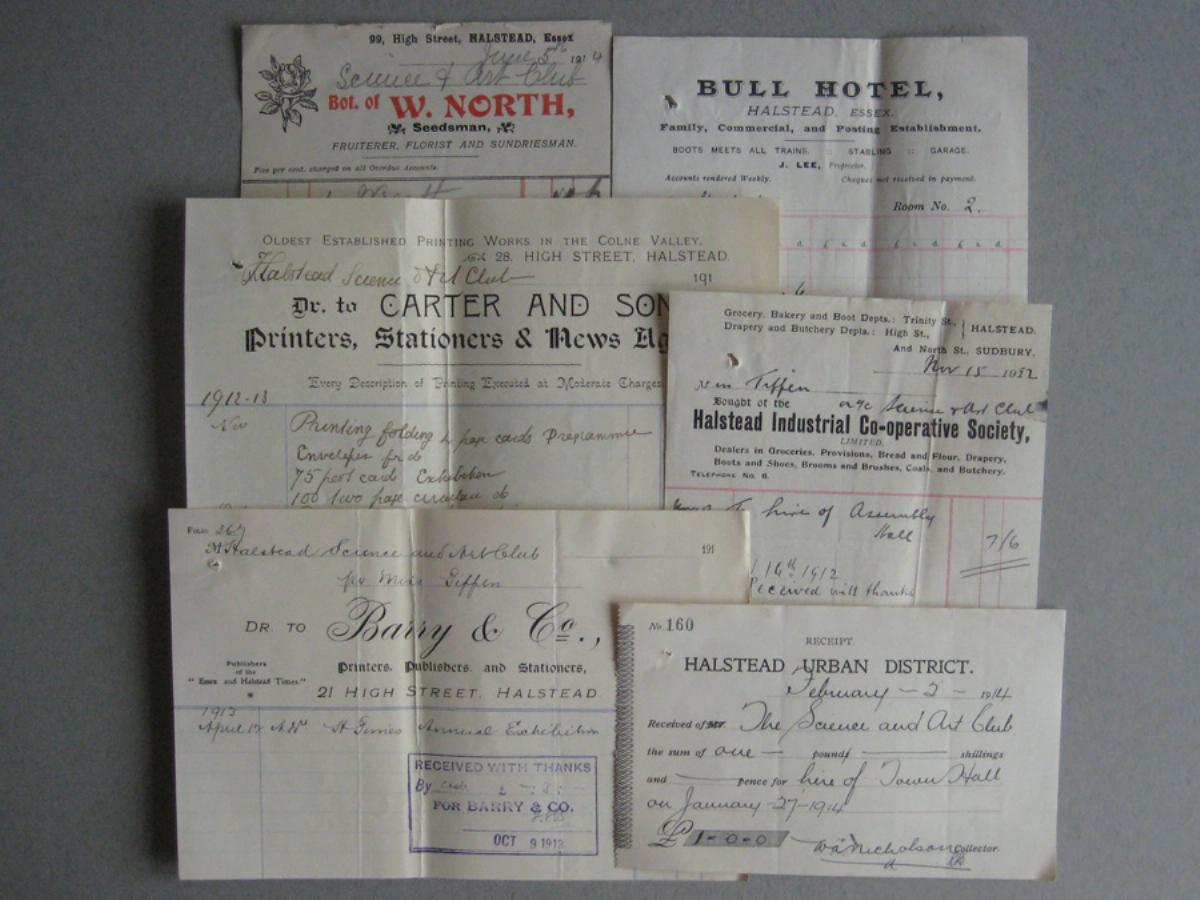 99, High Street, HALSTEAD, Essex
June 5th 1914
Science & Art Club
Bot. of W. NORTH,
Seedsman,
FRUITERER, FLORIST AND SUNDRIESMAN.
Five per cent. charged on all Overdue Accounts.
BULL HOTEL,
HALSTEAD, ESSEX.
Family, Commercial, and Posting Establishment.
BOOTS MEETS ALL TRAINS. :: STABLING :: GARAGE.
J. LEE, Proprietor.
Accounts rendered Weekly. Cheques not received in payment.
Room No. 2.
OLDEST ESTABLISHED PRINTING WORKS IN THE COLNE VALLEY.
28, HIGH STREET, HALSTEAD.
Halstead Science & Art Club 191
Dr. to CARTER AND SON
Printers, Stationers & News Ag
Every Description of Printing Executed at Moderate Charges
1912-13
Nov Printing folding 4 page cards Programme
Envelopes for do
75 post cards Exhibition
100 two page circular do
Grocery, Bakery and Boot Depts.: Trinity St.,
Drapery and Butchery Depts.: High St., HALSTEAD.
And North St., SUDBURY.
Nov 15 1912
Tiffen
Bought of the a/c Science & Art Club
Halstead Industrial Co-operative Society,
LIMITED.
Dealers in Groceries, Provisions, Bread and Flour, Drapery,
Boots and Shoes, Brooms and Brushes, Coals, and Butchery.
TELEPHONE No. 8.
To hire of Assembly
Hall 7/6
16th 1912
Received with thanks
Folio 267
M Halstead Science and Art Club 191
per Miss Tiffen
DR. TO Barry & Co.,
Publishers of the "Essex and Halstead Times."
Printers, Publishers, and Stationers,
21 HIGH STREET, HALSTEAD
April 12 Advt H Times Annual Exhibition
RECEIVED WITH THANKS
By cash £
FOR BARRY & CO.
OCT 9 1912
No. 160
RECEIPT.
HALSTEAD URBAN DISTRICT.
February - 2 - 1914
Received of Mr The Science and Art Club
the sum of one pounds shillings
and pence for hire of Town Hall
on January - 27 - 1914
£ 1-0-0
Nicholson Collector.